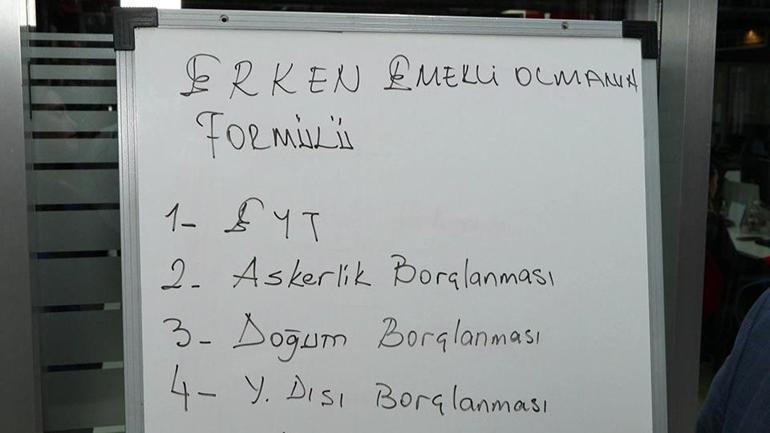 ERKEN EMEKLİ OLMANIN
FORMÜLÜ
1- EYT
2- Askerlik Borçlanması
3- Doğum Borçlanması
4- Y. Dışı Borçlanması